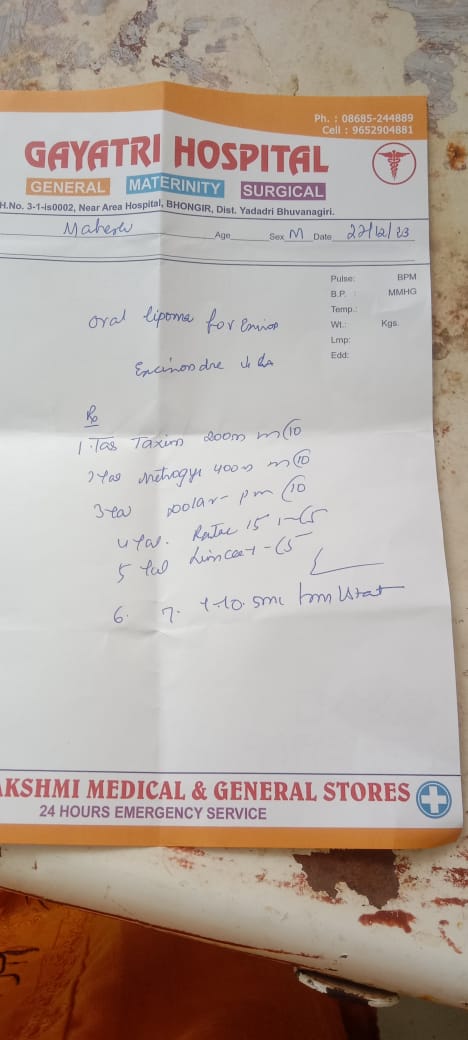 Ph. : 08685-244889
Cell : 9652904881
GAYATRI HOSPITAL
GENERAL MATERINITY SURGICAL
H.No. 3-1-is0002, Near Area Hospital, BHONGIR, Dist. Yadadri Bhuvanagiri.
Mahesh Age Sex M Date 22/12/23
Pulse: BPM
B.P. : MMHG
Temp.:
Wt.: Kgs.
Lmp:
Edd:
oral lipoma for
Rx
1. Tab Taxim 200m m 10
2 Tab Metrogyl 400m m 10
3 Tab pm 10
4 Tab. Rantac 15
5 Tab Limcee 1-15
6. 7. 0.5ml Im stat
AKSHMI MEDICAL & GENERAL STORES
24 HOURS EMERGENCY SERVICE